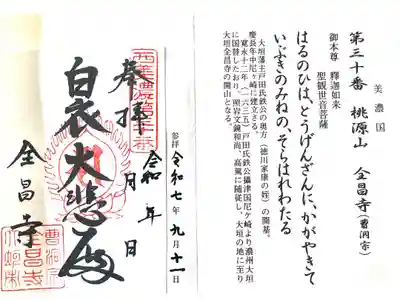 美濃国
第三十番 桃源山 全昌寺(曹洞宗)
御本尊 釋迦如来
聖観世音菩薩
はるのひは、とうげんざんに、かがやきて
いぶきのみねの、そらはれわたる
大垣藩主戸田氏鉄公の奥方(徳川家康の姪)の開基。
慶長年中尼ヶ崎に建立さる。
寛永十二年(一六三五)戸田氏鉄公攝津国尼ヶ崎より濃州大垣
に国替したおり、照岩文鏡和尚、高風に随従し、大垣の地に至り
大垣全昌寺の開山となる。
参拝 令和七年 九月十一日
西美濃第三十番
奉拝
令和 年 月 日
白衣大悲殿
全昌寺
曹洞宗
全昌寺